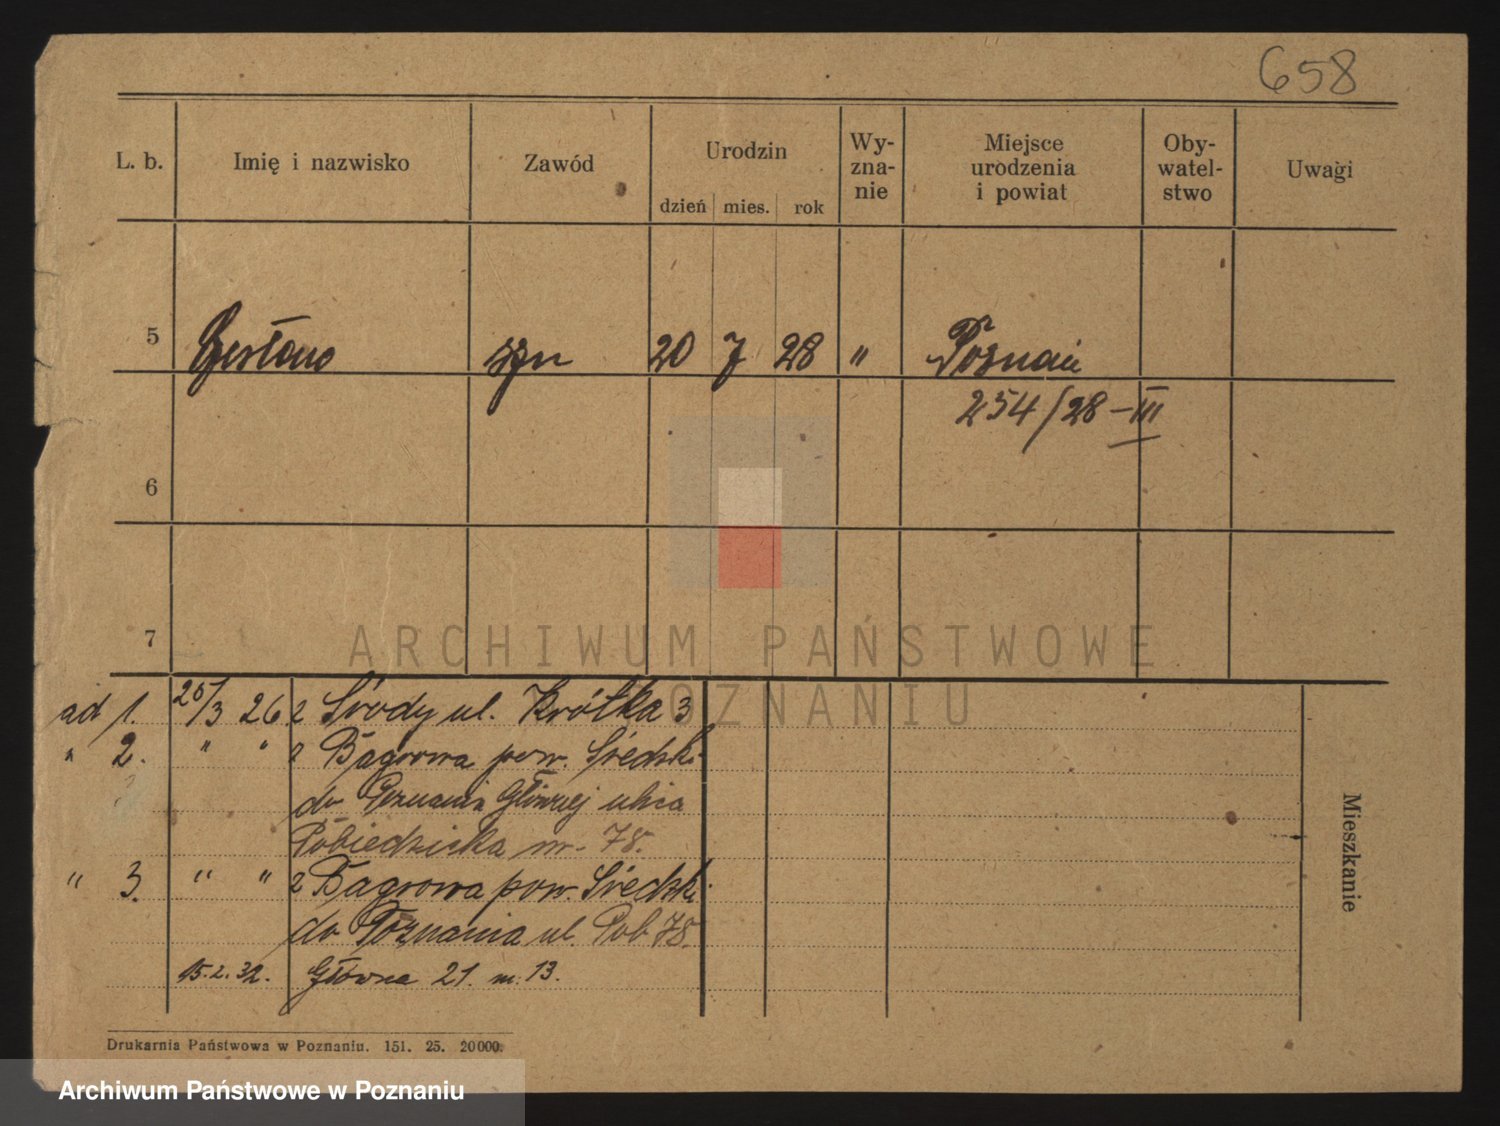 658
L. b. Imię i nazwisko Zawód Urodzin Wy-zna-nie Miejsce urodzenia i powiat Oby-watel-stwo Uwagi
dzień mies. rok
5 Czesława syn 20 7 28 " Poznań
254/28 – III
6
7
ARCHIWUM PAŃSTWOWE
POZNANIU
ad 1. 25/3 26 z Środy ul. Krótka 3
" 2. " " z Bagrowa pow. Średzki
do Poznania Głównej ulica
Pobiedzicka nr. 78.
" 3. " " z Bagrowa pow. Średzki
do Poznania ul. Pob 78.
15.2.32. Główna 21 m. 13.
Mieszkanie
Drukarnia Państwowa w Poznaniu. 151. 25. 20000.
Archiwum Państwowe w Poznaniu